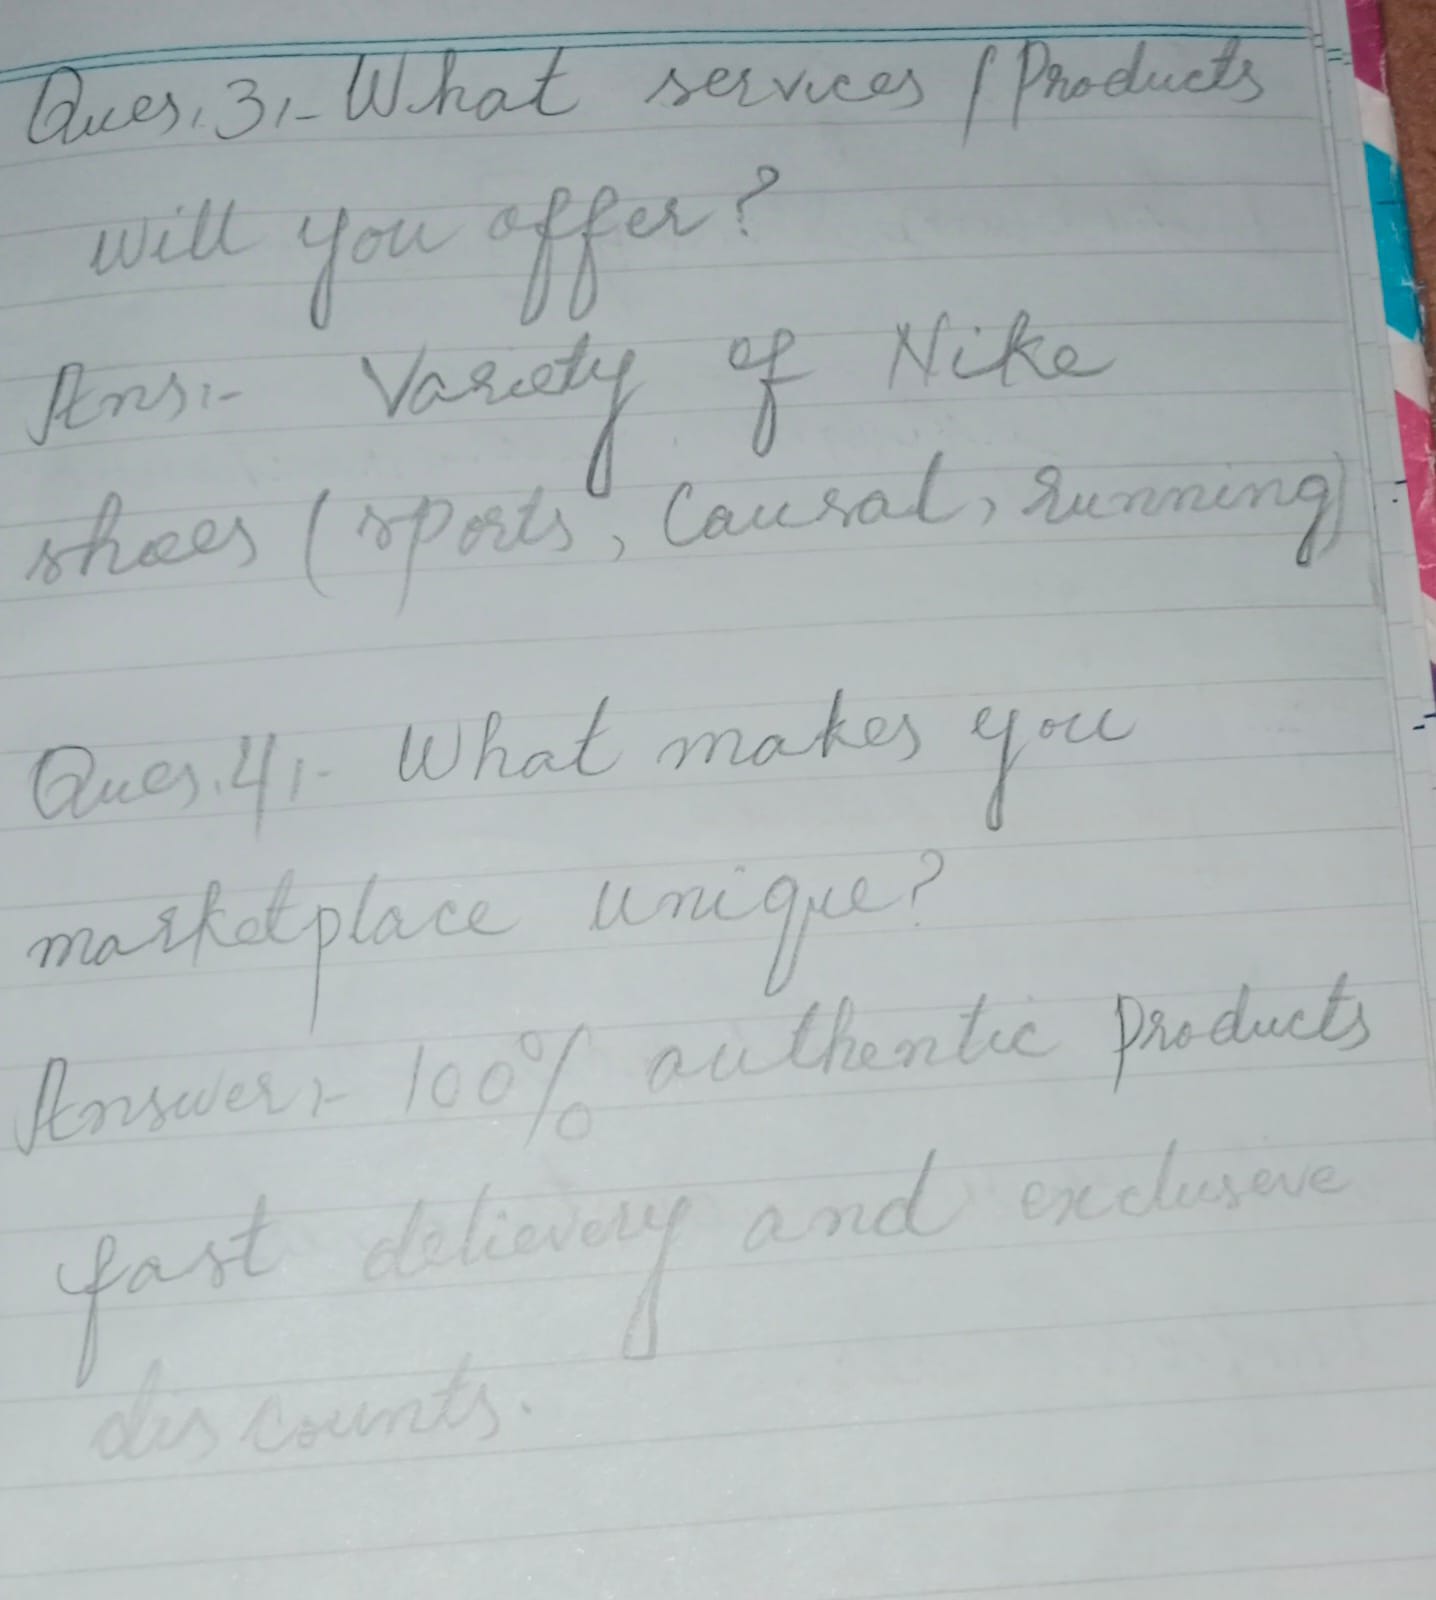 Ques.3:- What services / Products
will you offer?
Ans:- Variety of Nike
shoes (sports, Causal, running)
Ques.4:- What makes you
marketplace unique?
Answer:- 100% authentic Products
fast delievery and exclusive
discounts.